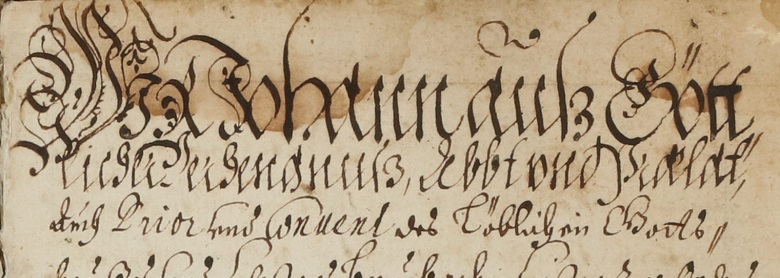 Wir Johann auß Gött
licher Verhengnuß, Abbt vnd Prælat,
Auch Prior vnd Convent des Löblichen Gotts,,